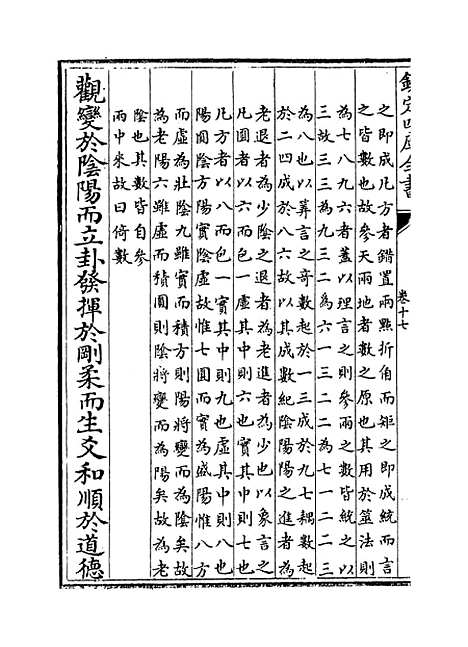 欽定四庫全書
卷十七
之即成凡方者錯置兩點折角而矩之即成統而言
之皆數也故參天兩地者數之原也其用於筮法則
為七八九六者蓋以理言之則參兩之數皆統之以
三故三三為九三二為六一三二二為七一二二三
為八也以筭言之奇數起於一三成於九七耦數起
於二四成於八六故以其成數紀陰陽陽之進者為
老退者為少陰之退者為老進者為少也以象言之
凡圓者以六而包一實其中則七也虛其中則六也
凡方者以八而包一實其中則九也虛其中則八也
陽圓陰方陽實陰虛故惟七圓而實為盛陽惟八方
而虛為壯陰九雖實而積方則陽將變而為陰矣故
為老陽六雖虛而積圓則陰將變而為陽矣故為老
陰也其數皆自參
兩中来故曰倚數
觀變於陰陽而立卦發揮於剛柔而生爻和順於道德